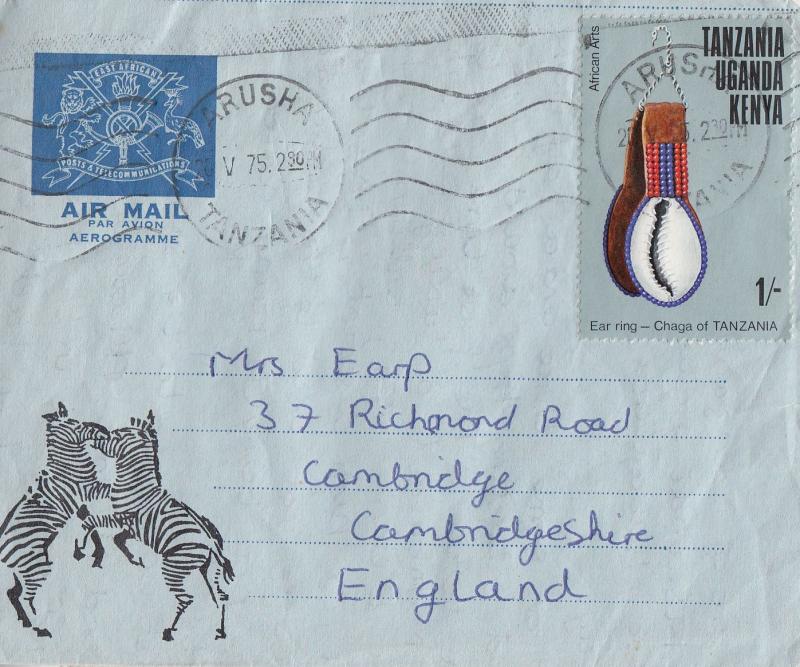 EAST AFRICAN
POSTS & TELECOMMUNICATIONS
AIR MAIL
PAR AVION
AEROGRAMME
ARUSHA
V 75. 2 30 PM
TANZANIA
African Arts
TANZANIA
UGANDA
KENYA
1/-
Ear ring – Chaga of TANZANIA
Mrs Earp
37 Richmond Road
Cambridge
Cambridgeshire
England